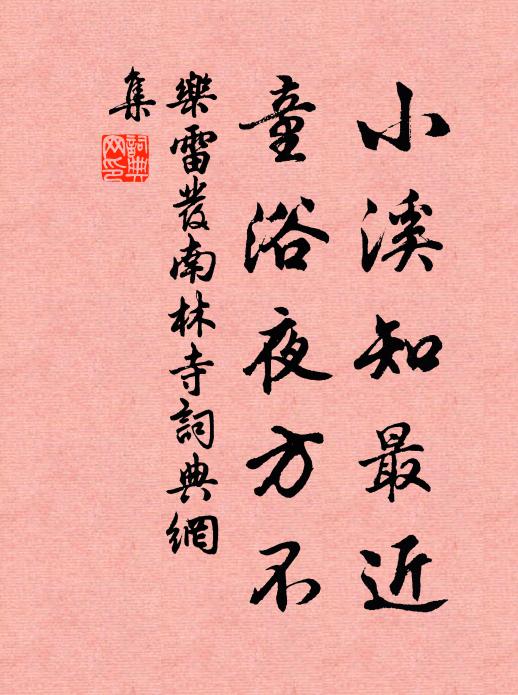 小溪知最近
童浴夜方不
樂雷發南林寺詞典網
集
詞典
网印